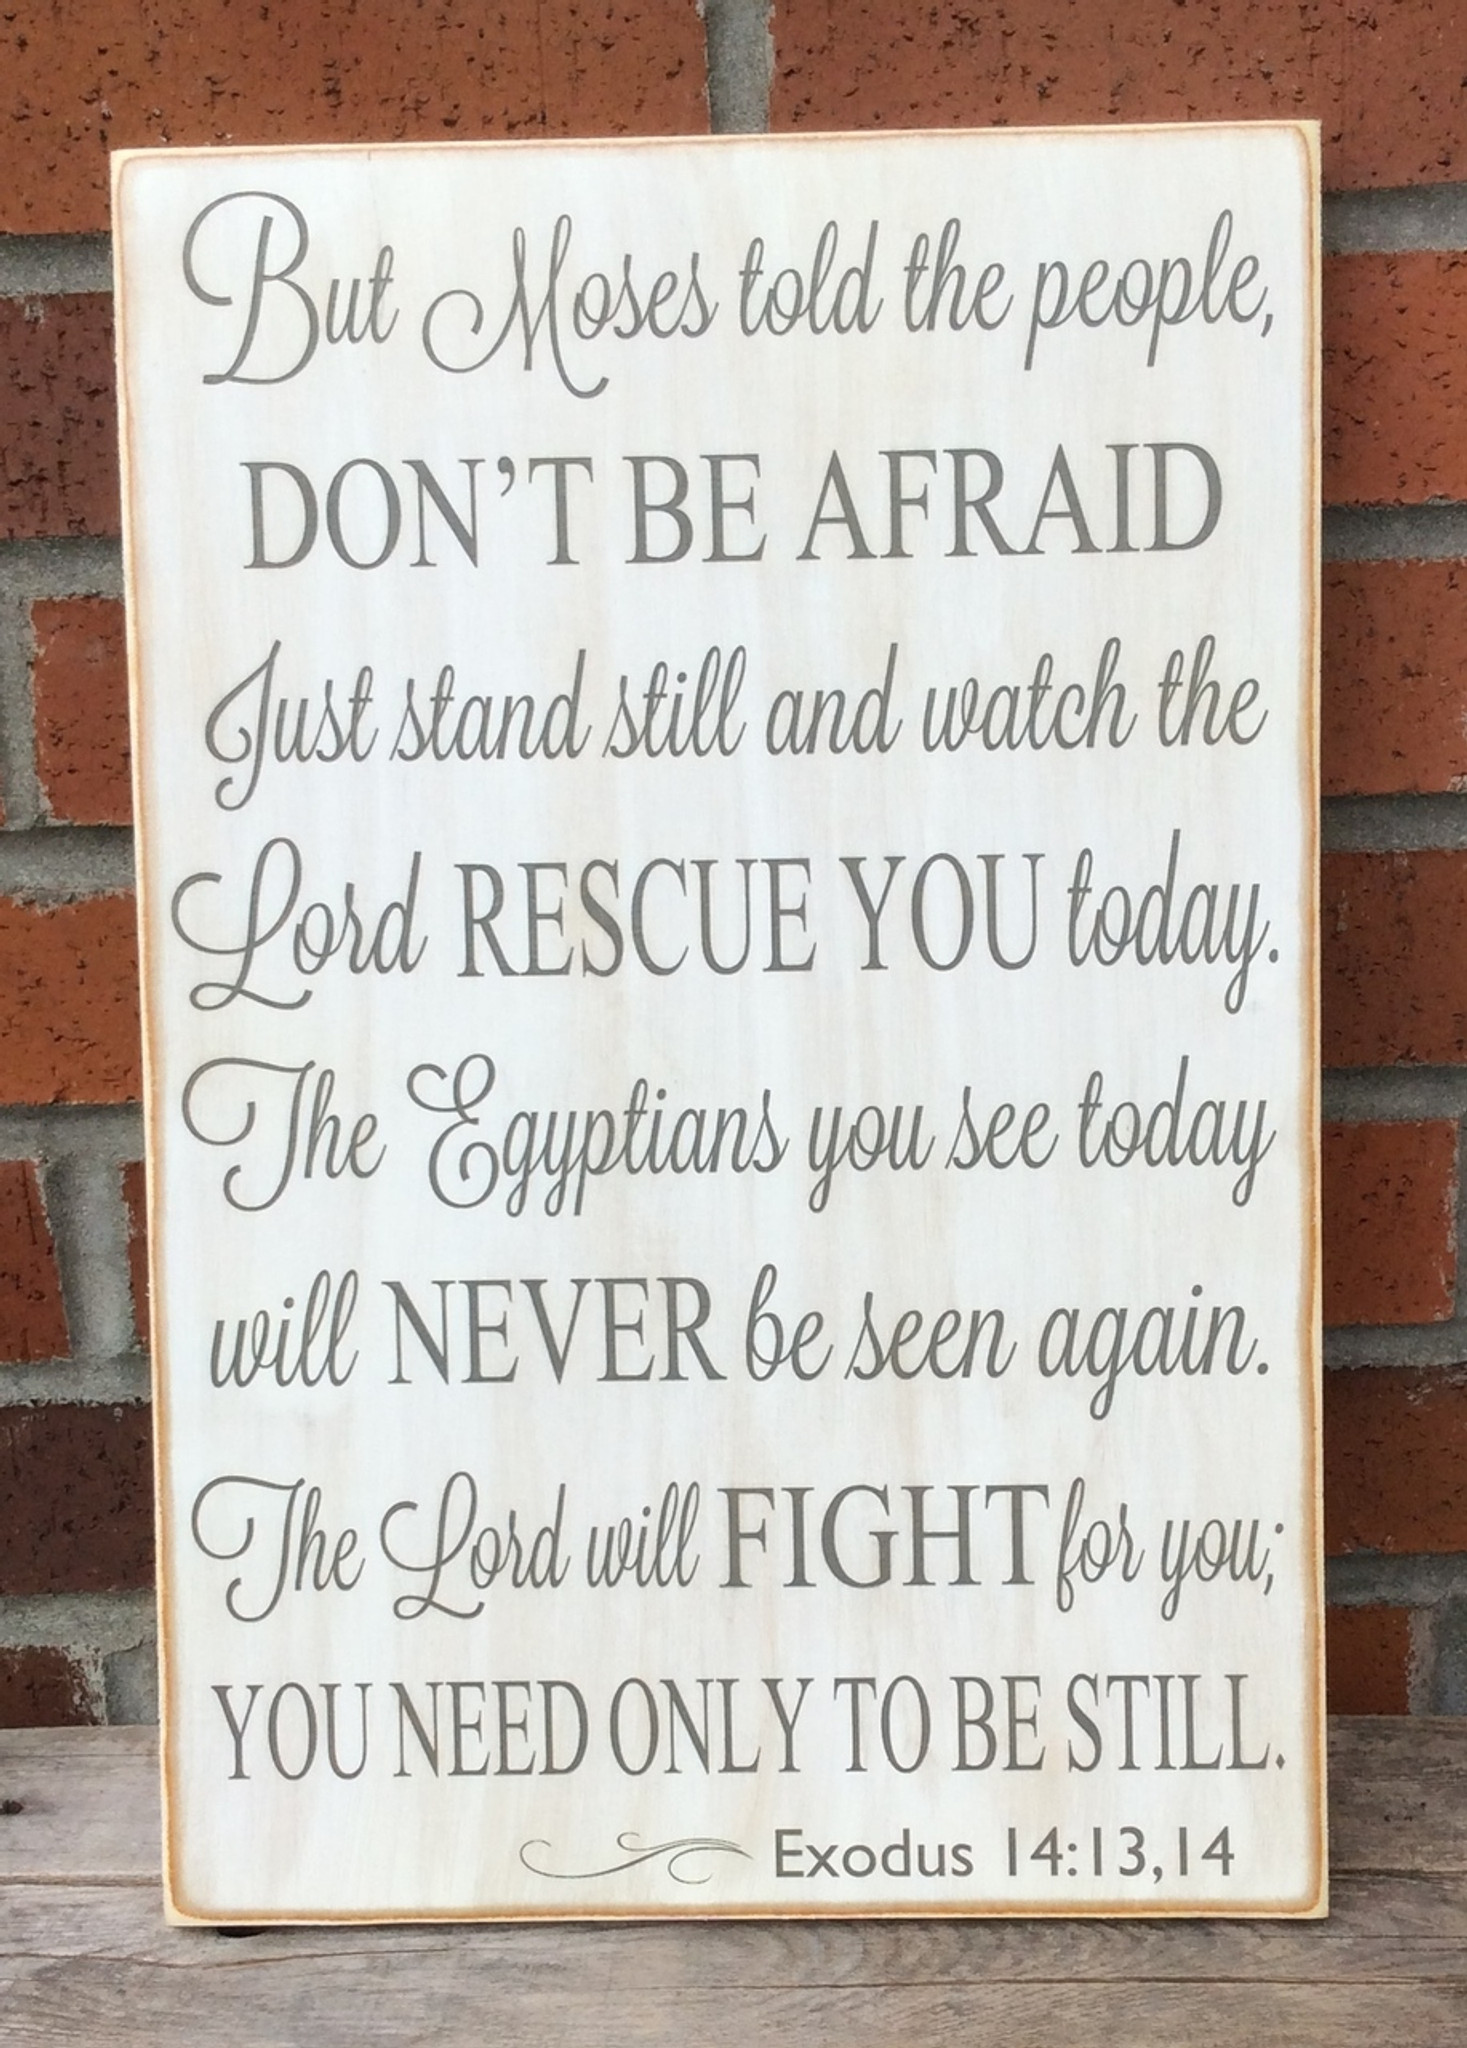 But Moses told the people,
DON'T BE AFRAID
Just stand still and watch the
Lord RESCUE YOU today.
The Egyptians you see today
will NEVER be seen again.
The Lord will FIGHT for you;
YOU NEED ONLY TO BE STILL.
Exodus 14:13,14